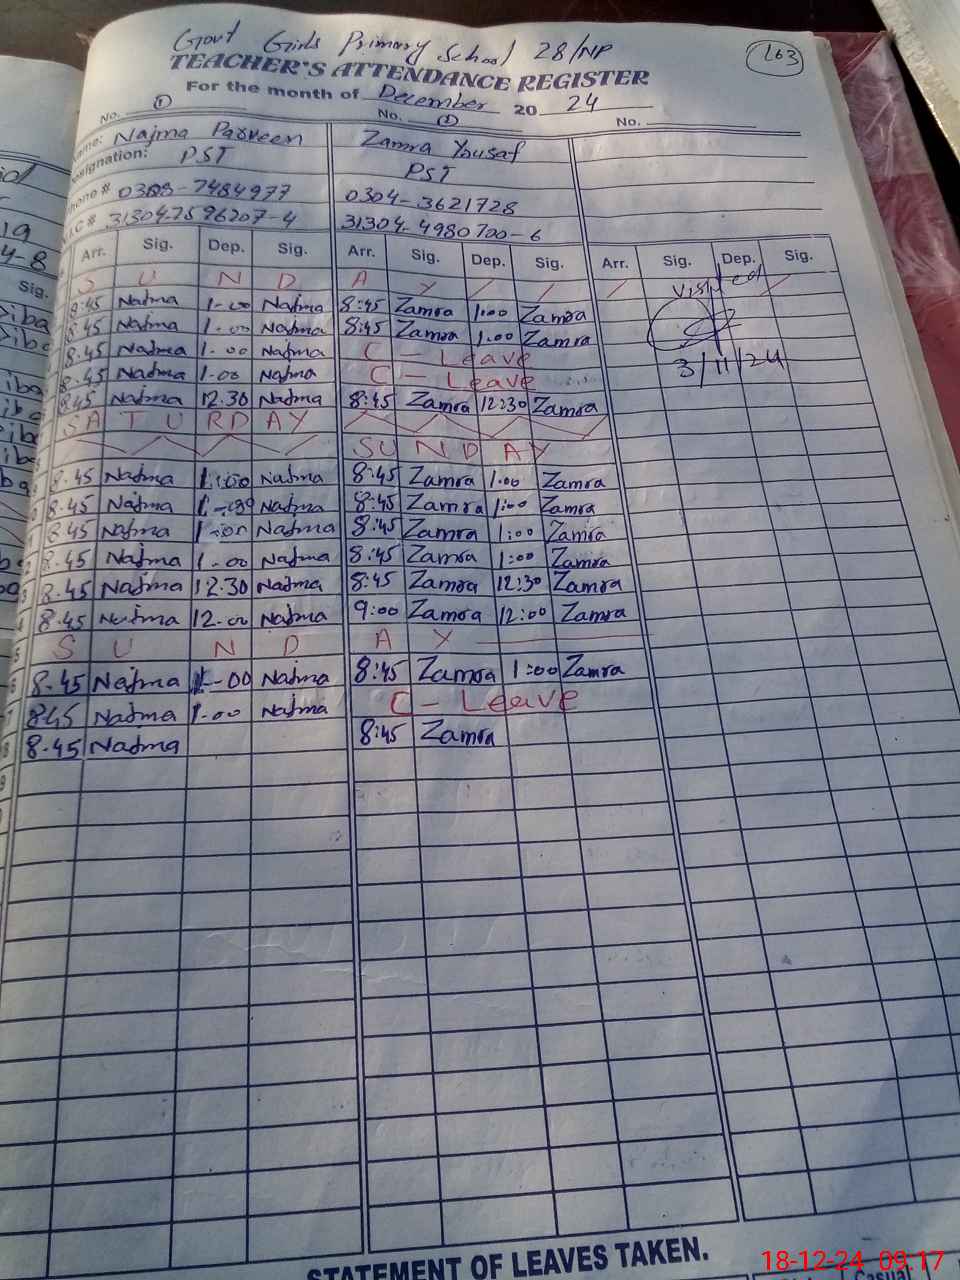 Govt Girls Primary School 28/NP
163
TEACHER'S ATTENDANCE REGISTER
For the month of December 20 24
No. 1 No. 2 No.
Name: Najma Parveen Zamra Yousaf
Designation: PST PST
Phone # 7484977 0304-3621728
31304-4980700-6
Arr. Sig. Dep. Sig. Arr. Sig. Dep. Sig. Arr. Sig. Dep. Sig.
S U N D A Y
8:45 Najma 1-00 Najma 8:45 Zamra 1:00 Zamra
8:45 Najma 1.00 Najma 8:45 Zamra 1:00 Zamra
8.45 Najma 1.00 Najma C - Leave
8.45 Najma 1.00 Najma C - Leave
8.45 Najma 12.30 Najma 8:45 Zamra 12:30 Zamra
SATURDAY
SUNDAY
8.45 Najma 1:00 Najma 8:45 Zamra 1:00 Zamra
8.45 Najma Najma 8:45 Zamra 1:00 Zamra
8.45 Najma 1-00 Najma 8:45 Zamra 1:00 Zamra
8.45 Najma 1.00 Najma 8:45 Zamra 1:00 Zamra
8.45 Najma 12.30 Najma 8:45 Zamra 12:30 Zamra
8.45 Najma 12.00 Najma 9:00 Zamra 12:00 Zamra
S U N D A Y
8.45 Najma 1-00 Najma 8:45 Zamra 1:00 Zamra
8.45 Najma 1.00 Najma C - Leave
8.45 Najma 8:45 Zamra
Visited
3/11/24
STATEMENT OF LEAVES TAKEN.
18-12-24 09:17